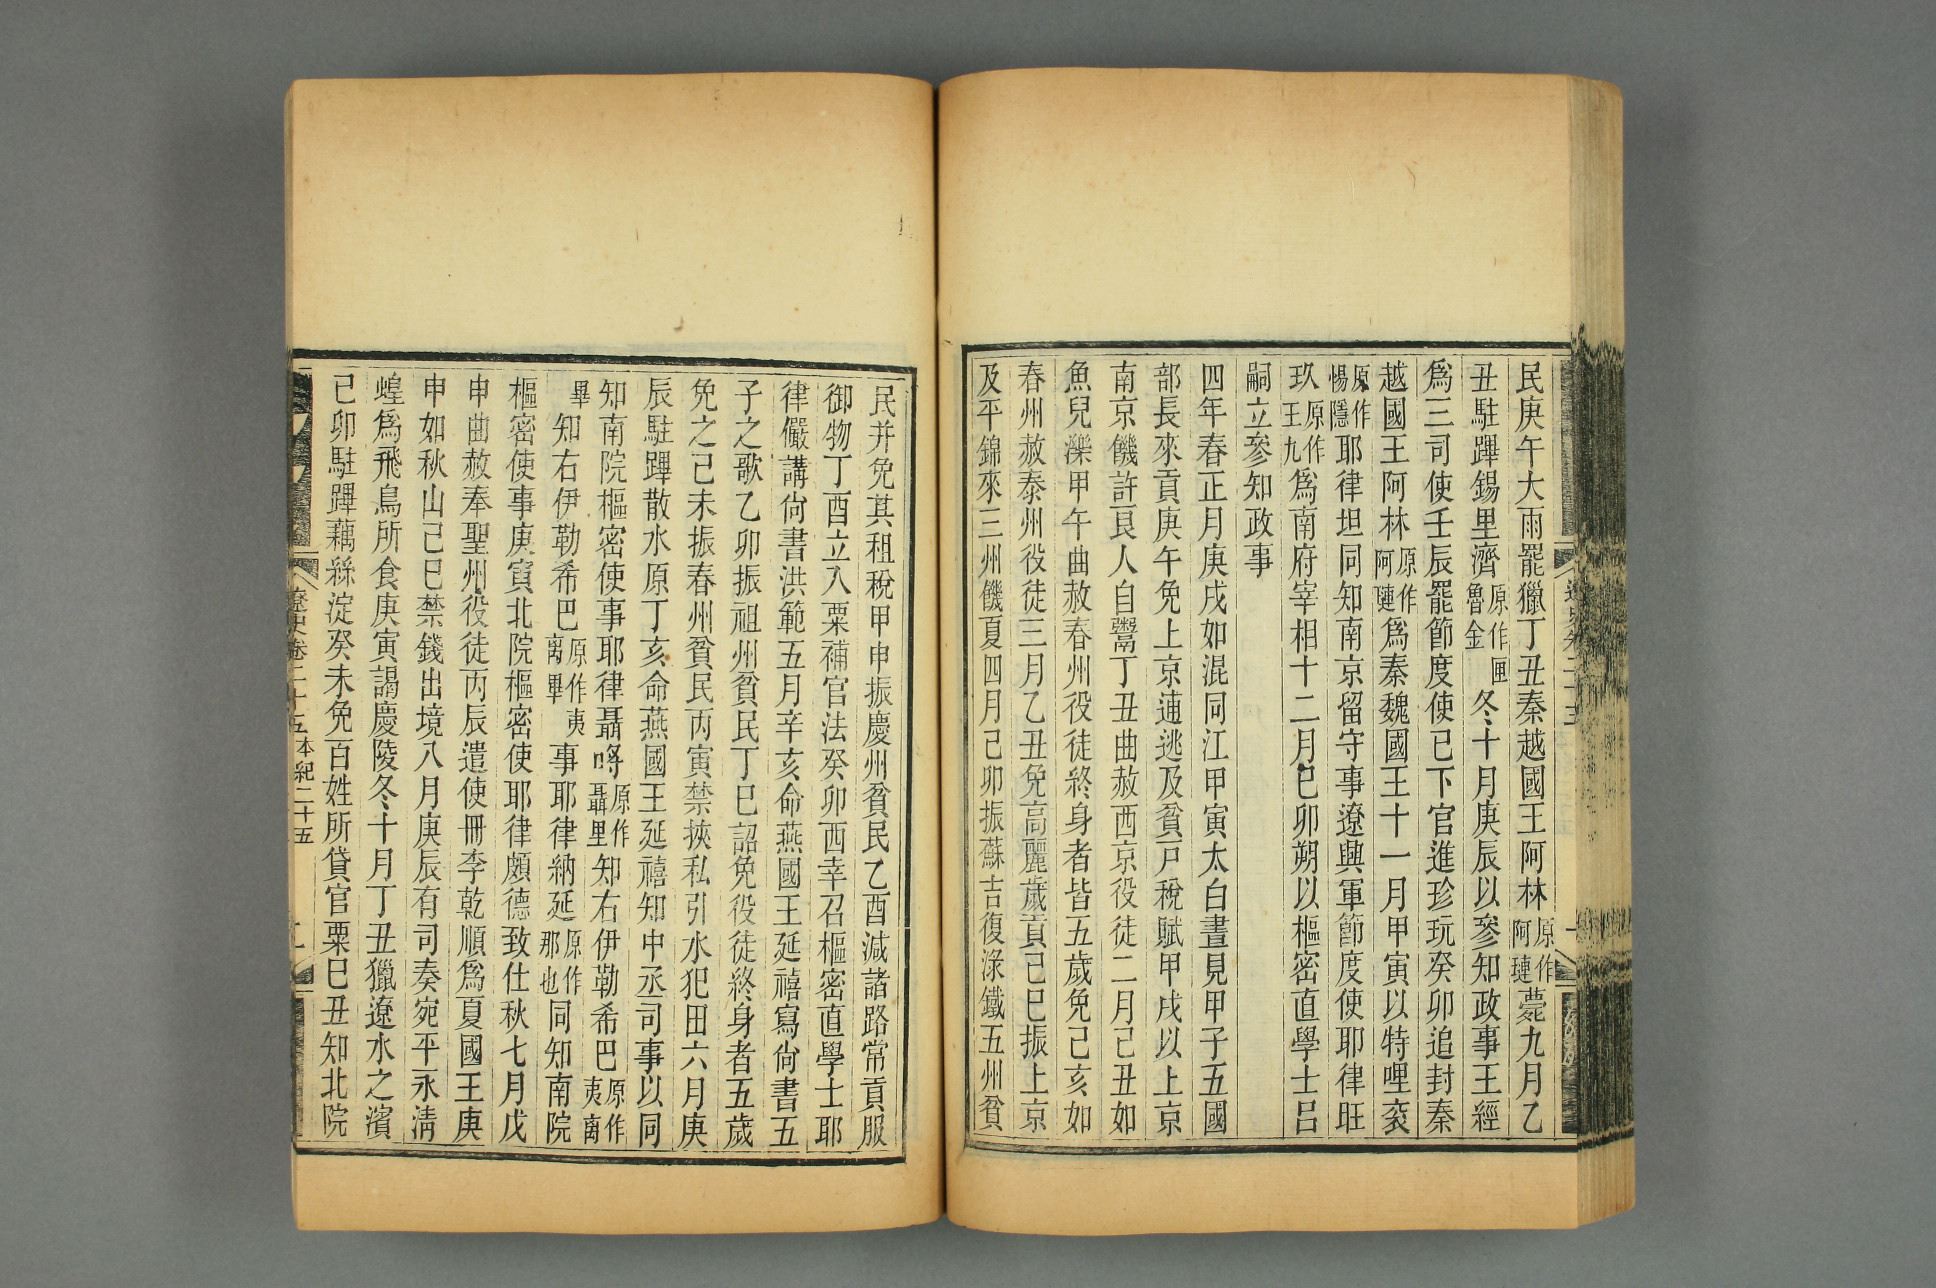 民庚午大雨罷獵丁丑秦越國王阿林原作阿璉薨九月乙
丑駐蹕錫里濟原作匣魯金冬十月庚辰以參知政事王經
爲三司使壬辰罷節度使已下官進珍玩癸卯追封秦
越國王阿林原作阿璉爲秦魏國王十一月甲寅以特哩袞
原作惕隱耶律坦同知南京留守事遼興軍節度使耶律旺
玖原作王九爲南府宰相十二月己卯朔以樞密直學士呂
嗣立參知政事
四年春正月庚戌如混同江甲寅太白晝見甲子五國
部長來貢庚午免上京逋逃及貧戸稅賦甲戌以上京
南京饑許良人自鬻丁丑曲赦西京役徒二月己丑如
魚兒濼甲午曲赦春州役徒終身者皆五歲免己亥如
春州赦泰州役徒三月乙丑免高麗歲貢己巳振上京
及平錦來三州饑夏四月己卯振蘇吉復淥鐵五州貧
民并免其租稅甲申振慶州貧民乙酉減諸路常貢服
御物丁酉立入粟補官法癸卯西幸召樞密直學士耶
律儼講尙書洪範五月辛亥命燕國王延禧寫尙書五
子之歌乙卯振祖州貧民丁巳詔免役徒終身者五歲
免之己未振春州貧民丙寅禁挾私引水犯田六月庚
辰駐蹕散水原丁亥命燕國王延禧知中丞司事以同
知南院樞密使事耶律聶哷原作聶里知右伊勒希巴原作夷離
畢知右伊勒希巴原作夷离畢事耶律納延原作那也同知南院
樞密使事庚寅北院樞密使耶律頗德致仕秋七月戊
申曲赦奉聖州役徒丙辰遣使冊李乾順爲夏國王庚
申如秋山己巳禁錢出境八月庚辰有司奏宛平永淸
蝗爲飛鳥所食庚寅謁慶陵冬十月丁丑獵遼水之濱
己卯駐蹕藕絲淀癸未免百姓所貸官粟己丑知北院
遼史卷二十五 本紀二十五